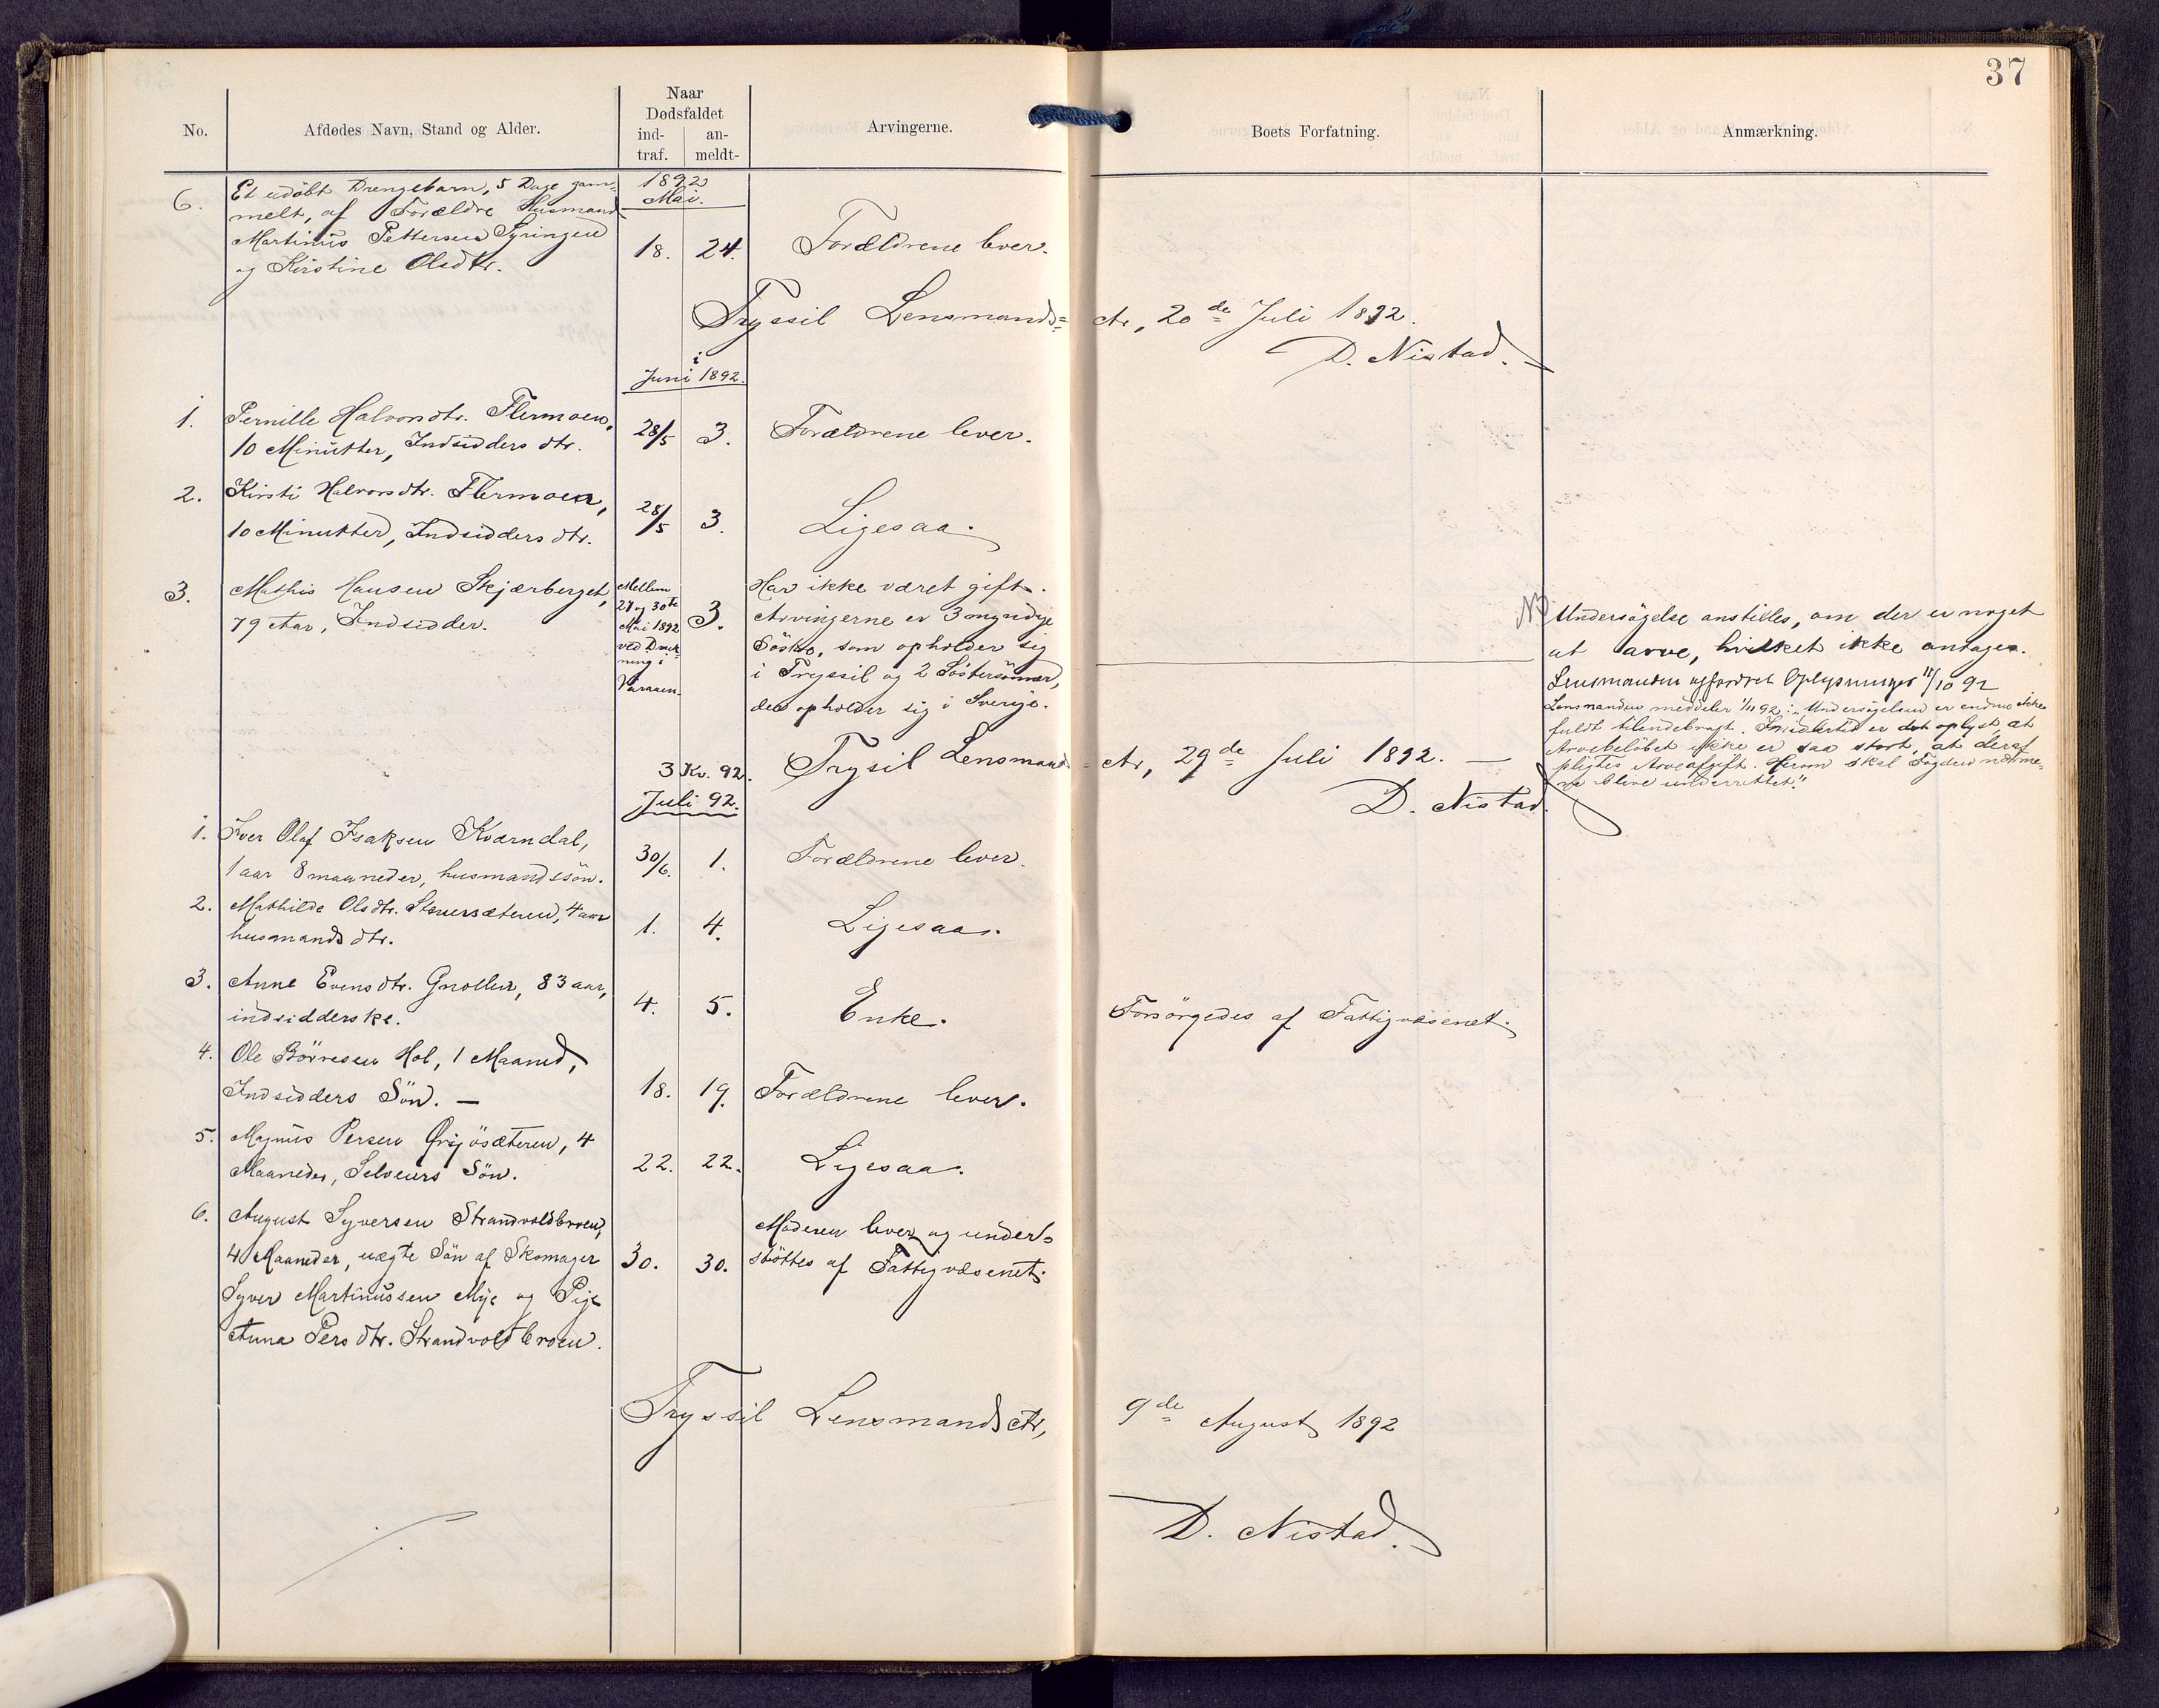 37
No.
Afdødes Navn, Stand og Alder.
Naar
Dødsfaldet
ind-
traf.
an-
meldt-
Arvingerne.
Boets Forfatning.
Anmærkning.
1892
Mai.
6.
Et udöbt Drengebarn, 5 Dage gam-
melt, af Forældre Husmand
Martinus Pettersen Syringen
og Kirstine Olsdtr.
18. 24. Forældrene lever.
Tryssil Lensmands= Ar, 20de Juli 1892.
D. Nistad.
i
Juni 1892.
1. Pernille Halvorsdtr. Flermoen,
10 Minutter, Indsidders dtr.
28/5 3. Forældrene lever.
2. Kirsti Halvorsdtr. Flermoen,
10 Minutter, Indsidders dtr.
28/5 3. Ligesaa.
3. Mathis Hansen Skjærberget,
79 Aar, Indsidder.
Mellem
27 og 30te
Mai 1892
ved Druk-
ning i
Varaaen.
3.
Har ikke været gift.
Arvingerne er 3 myndige
Söskb, som opholder sig
i Tryssil og 2 Söstersönner,
der opholder sig i Sverige.
NB Undersögelse anstilles, om der er noget
at arve, hvilket ikke antages.
Lensmanden opfordret Oplysninger 11/10 92
Lensmanden meddeler 1/11 92: "Undersögelsen er endnu ikke
fuldt tilendebragt. Imidlertid er det oplyst, at
Arvebelöbet ikke er saa stort, at deraf
pligtes Arveafgift. Herom skal Fogden nærme-
re blive underrettet."
3 Kv. 92. Trysil Lensmand- Ar, 29de Juli 1892. —
D. Nistad.
Juli 92.
1. Iver Olaf Isaksen Kværndal,
1 aar 8 maaneder, husmandssön.
30/6. 1. Forældrene lever.
2. Mathilde Olsdtr. Stenersæteren, 4 aar
husmands dtr.
1. 4. Ligesaa.
3. Anne Evensdtr. Gnollen, 83 aar,
indsidderske.
4. 5. Enke. Forsörgedes af Fattigvæsenet.
4. Ole Börresen Hol, 1 Maaned,
Indsidders Sön. —
18. 19. Forældrene lever.
5. Magnus Persen Örsjösæteren, 4
Maaneder, Selveiers Sön.
22. 22. Ligesaa.
6. August Syversen Strandvoldbroen,
4 Maaneder, uægte Sön af Skomager
Syver Martinussen Mye og Pige
Anna Persdtr. Strandvoldbroen.
30. 30.
Moderen lever og under-
stöttes af Fattigvæsenet.
Tryssil Lensmands Ar, 9de August 1892
D. Nistad.